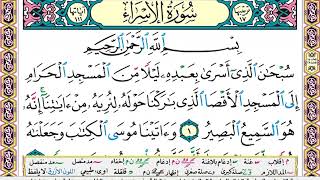 سُورَةُ الْإِسْرَاءِ
بِسْمِ اللَّهِ الرَّحْمَٰنِ الرَّحِيمِ
سُبْحَٰنَ الَّذِي أَسْرَىٰ بِعَبْدِهِ لَيْلًا مِّنَ الْمَسْجِدِ الْحَرَامِ
إِلَى الْمَسْجِدِ الْأَقْصَا الَّذِي بَٰرَكْنَا حَوْلَهُ لِنُرِيَهُ مِنْ ءَايَٰتِنَا إِنَّهُ
هُوَ السَّمِيعُ الْبَصِيرُ ١ وَءَاتَيْنَا مُوسَى الْكِتَٰبَ وَجَعَلْنَٰهُ